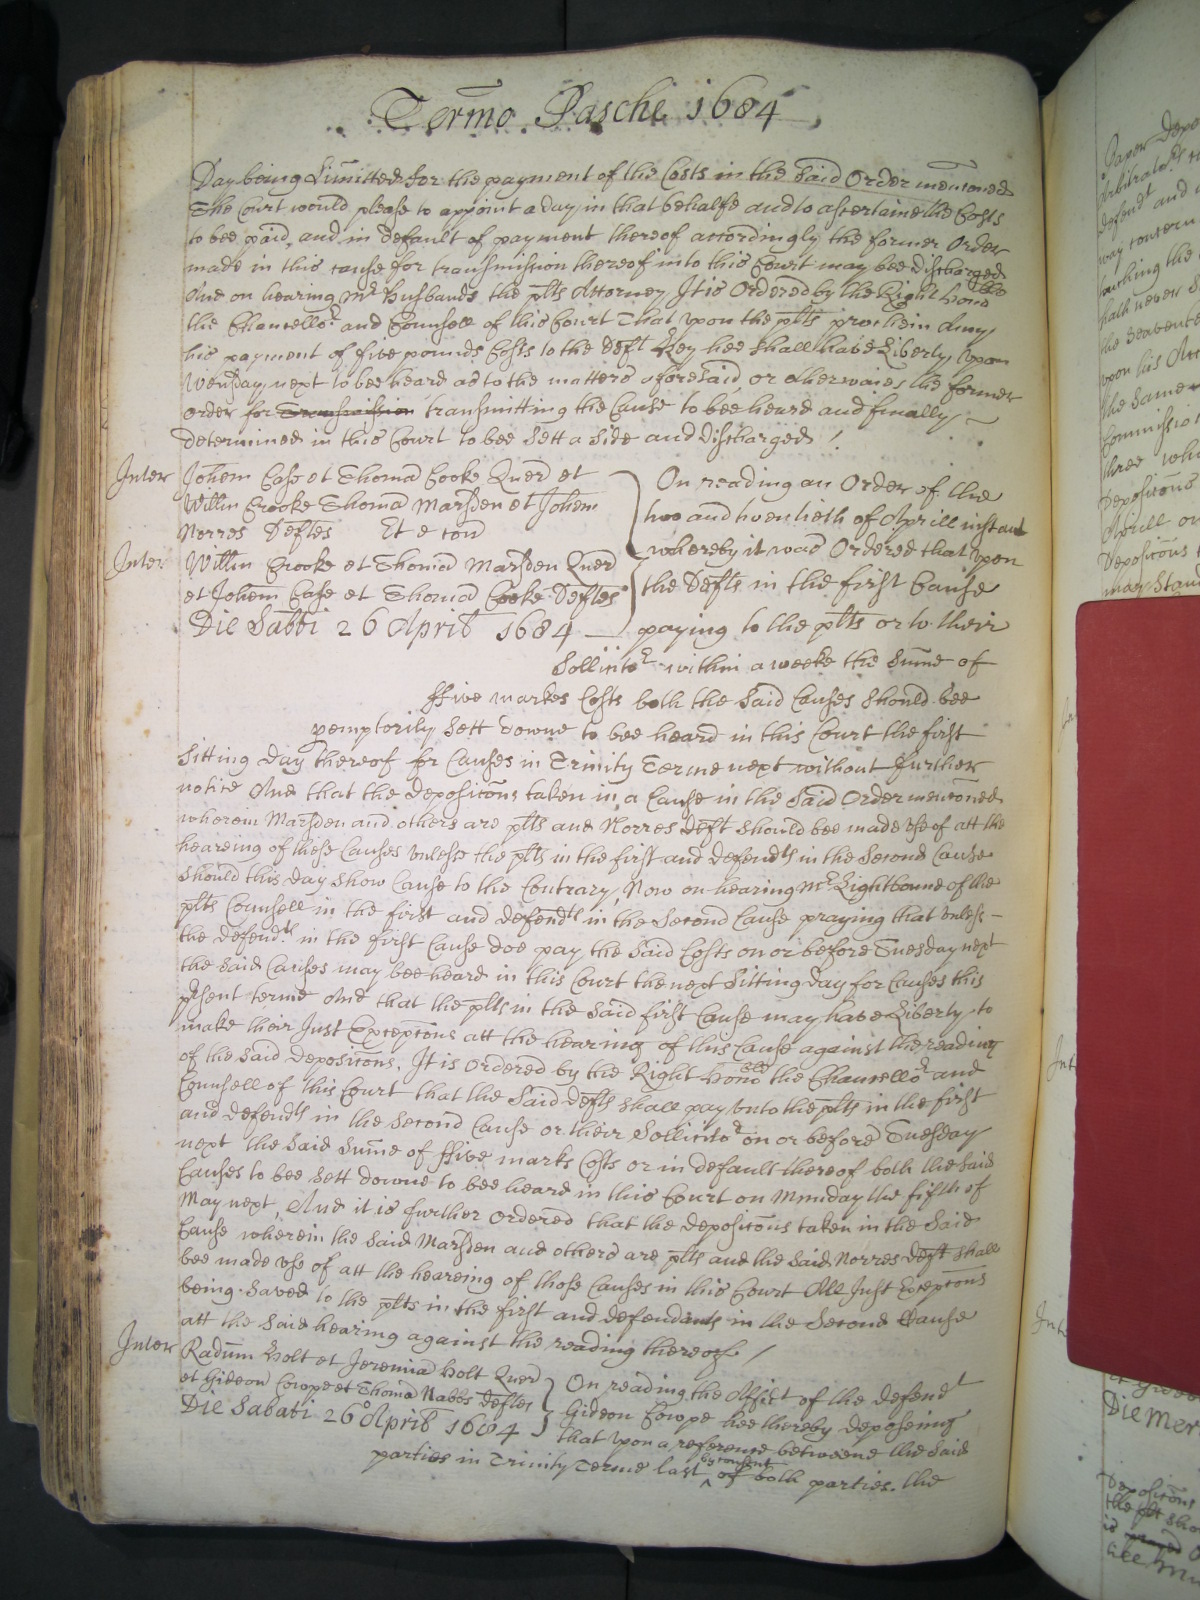 Termo Pasche 1684
Day being Limitted for the payment of the Costs in the Said Order menconed
The Court would please to appoint a day in that behalfe and to ascertaine the Costs
to bee paid, and in default of payment thereof accordingly the former Order
made in this cause for transmission thereof into this Court may bee discharged
And on hearing Mr Husbands the plts Attorney It is Ordered by the Right Honoble
the Chancellor and Counsell of this Court That upon the plts prochein Amy
his payment of five pounds Costs to the Deft Key hee shall have Liberty upon
Wensday next to bee heard as to the matters aforesaid or otherwaies the former
order for Transmission transmitting the Cause to bee heard and finally
determined in this Court to bee Sett a Side and discharged /
Inter Johem Case et Thoma Cooke Quer et
Willm Crooke Thoma Marsden et Johem
Norres Deftes Et e con
Inter Willm Crooke et Thoma Marsden Quer
et Johem Case et Thoma Cooke Deftes
Die Sabbi 26 April 1684
On reading an Order of the
two and twentieth of Aprill instant
whereby it was Ordered that upon
the Defts in the first Cause
paying to the plts or to their
Sollicitor within a weeke the Sume of
ffive markes Costs both the Said Causes should bee
pemptorily Sett downe to bee heard in this Court the first
Sitting day thereof for Causes in Trinity Terme next without further
notice And that the depositons taken in a Cause in the Said Order menconed
wherein Marsden and others are plts and Norres Deft should bee made use of att the
heareing of these Causes unlesse the plts in the first and defendts in the Second Cause
should this day show Cause to the Contrary, Now on hearing Mr Lightboune of the
plts Counsell in the first and defendts in the Second Cause praying that unless
the defendts in the first Cause doe pay the Said Costs on or before Tuesday next
the said Causes may bee heard in this Court the next Sitting day for Causes this
psent terme And that the plts in the Said first Cause may have Liberty to
make their Just Exceptons att the hearing of this Cause against the reading
of the Said depositons. It is Ordered by the Right Honoble the Chancellor and
Counsell of this Court that the Said defts shall pay unto the plts in the first
and defendts in the Second Cause or their Sollicitor on or before Tuesday
next the Said Sume of ffive marks Costs or in default thereof both the Said
Causes to bee Sett downe to bee heard in this Court on Munday the fifth of
May next, And it is further Ordered that the depositons taken in the Said
Cause wherein the Said Marsden and others are plts and the Said Norres deft shall
bee made use of att the heareing of those Causes in this Court All Just Exceptons
being Saved to the plts in the first and defendants in the Second Cause
att the Said hearing against the reading thereof /
Inter Radum Holt et Jeremia Holt Quer
et Gideon Cowpe et Thoma Nabbs Deftes
Die Sabati 26o April 1684
On reading the Affit of the defendt
Gideon Cowpe hee thereby deposeing
that upon a reference betweene the Said
parties in Trinity Terme last by consent of both parties. the